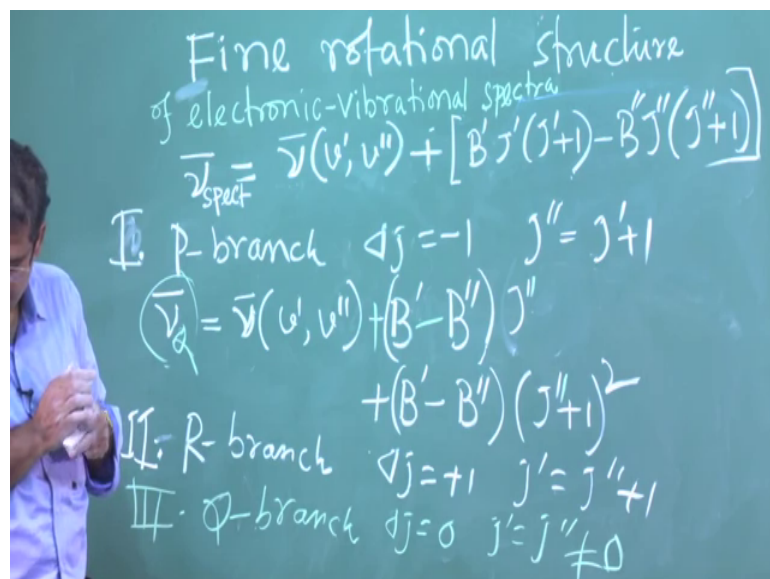 Fine rotational structure
of electronic-vibrational spectra
ν̅spect = ν̅(v', v'') + [B'J'(J'+1) - B''J''(J''+1)]
I. P-branch Δj = -1 J'' = J'+1
ν̅Q = ν̅(v', v'') + (B' - B'') J''
+ (B' - B'') (J''+1)²
II. R-branch Δj = +1 j' = j''+1
III. Q-branch Δj = 0 j' = j'' ≠ 0